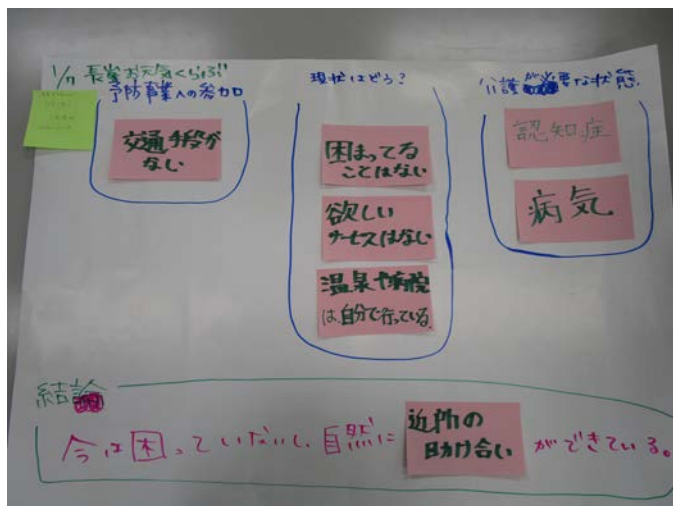 1/17 長峯お元気くらぶ
予防事業への参加
交通手段が
ない
現状はどう?
困まってる
ことはない
欲しい
サービスはない
温泉や病院
は自分で行っている。
介護が必要な状態
認知症
病気
結論
今は困っていないし、自然に
近所の
助け合い
ができている。